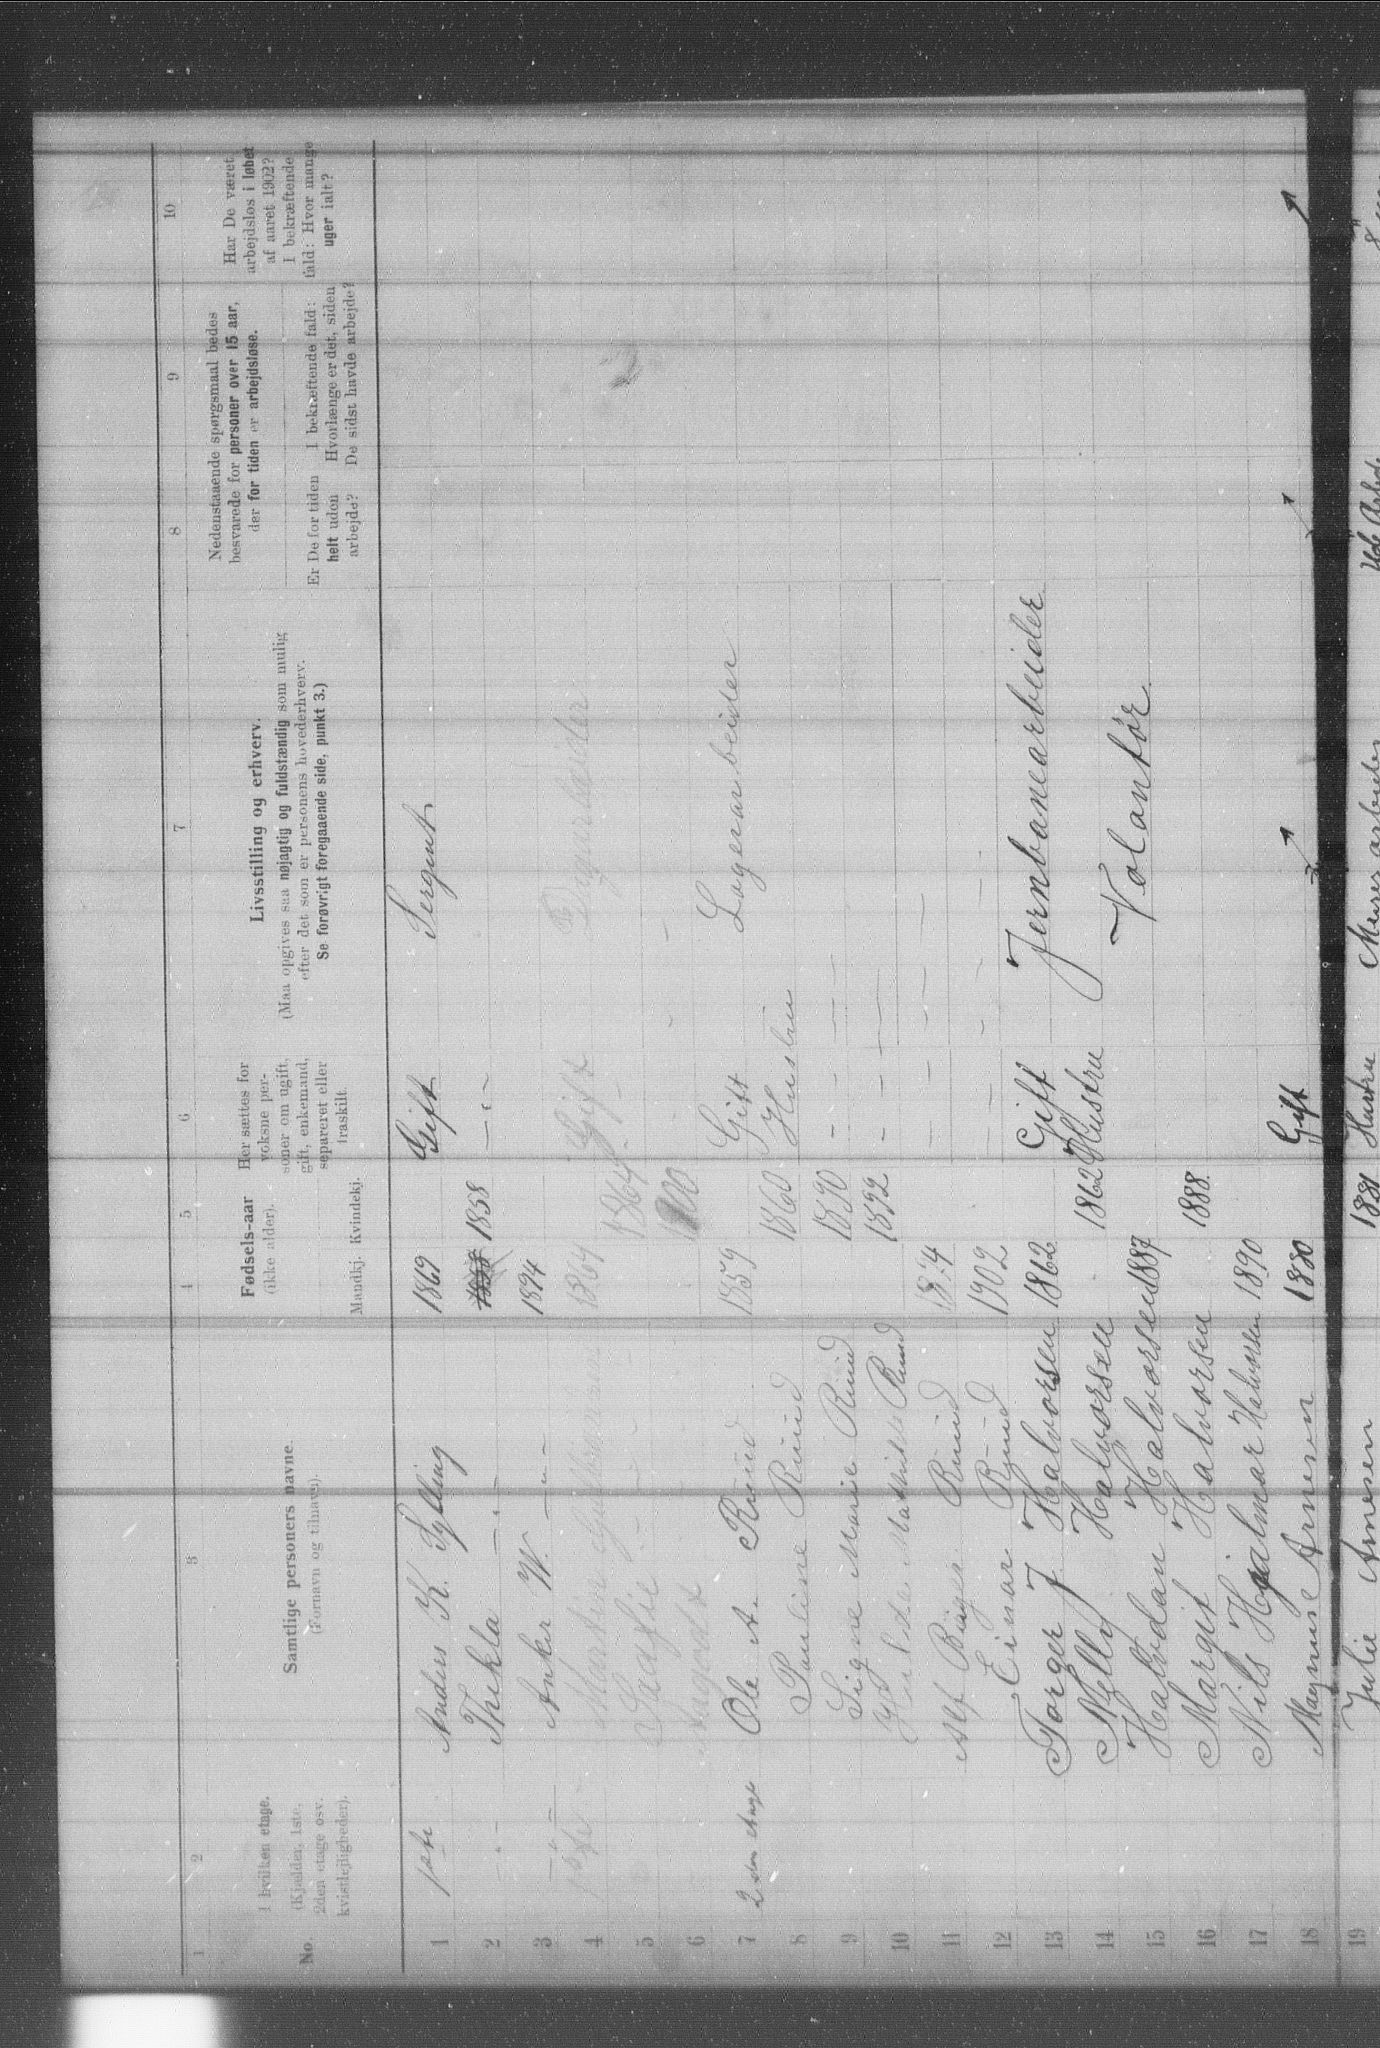 1 2 3 4 5 6 7 8 9 10
No.
I hvilken etage.
(Kjælder, 1ste,
2den etage osv.
kvistlejligheder).
Samtlige personers navne.
(Fornavn og tilnavn).
Fødsels-aar
(ikke alder).
Mandkj. Kvindekj.
Her sættes for
voksne per-
soner om ugift,
gift, enkemand,
separeret eller
fraskilt.
Livsstilling og erhverv.
(Maa opgives saa nøjagtig og fuldstændig som mulig
efter det som er personens hovederhverv.
Se forøvrigt foregaaende side, punkt 3.)
Nedenstaaende spørgsmaal bedes
besvarede for personer over 15 aar,
der for tiden er arbejdsløse.
Er De for tiden
helt uden
arbejde?
I bekræftende fald:
Hvorlænge er det, siden
De sidst havde arbejde?
Har De været
arbejdsløs i løbet
af aaret 1902?
I bekræftende
fald: Hvor mange
uger ialt?
1 1ste Anders K. Sylling 1869 Gift Sergent
2 - " - Thekla - " - 1858 1858 - " -
3 - " - Anker W. - " - 1894
4 1ste Martin 1864 Gift
5 Sagfie 1864
6 Aagodt
7 2den etage Ole A. Ruud 1859 Gift Lagerarbeider
8 Pauline Ruud 1860 Hustru
9 Signe Marie Ruud 1890 - - - -
10 Hulda Mathilde Ruud 1892 - - - -
11 Alf Birger Ruud - - - -
12 Einar Ruud 1902 - - - -
13 Torger J Halvorsen 1862 Gift Jernbanearbeider
14 Nelly Halvorsen 1862 Hustru
15 Halvdan Halvorsen 1887 Volantør
16 Margit Halvorsen 1888
17 Nils Hjalmar Halvorsen 1890
18 Magnus Arnesen 1880 Gift
19 Julie Arnesen 1881 Hustru Murerarbeider